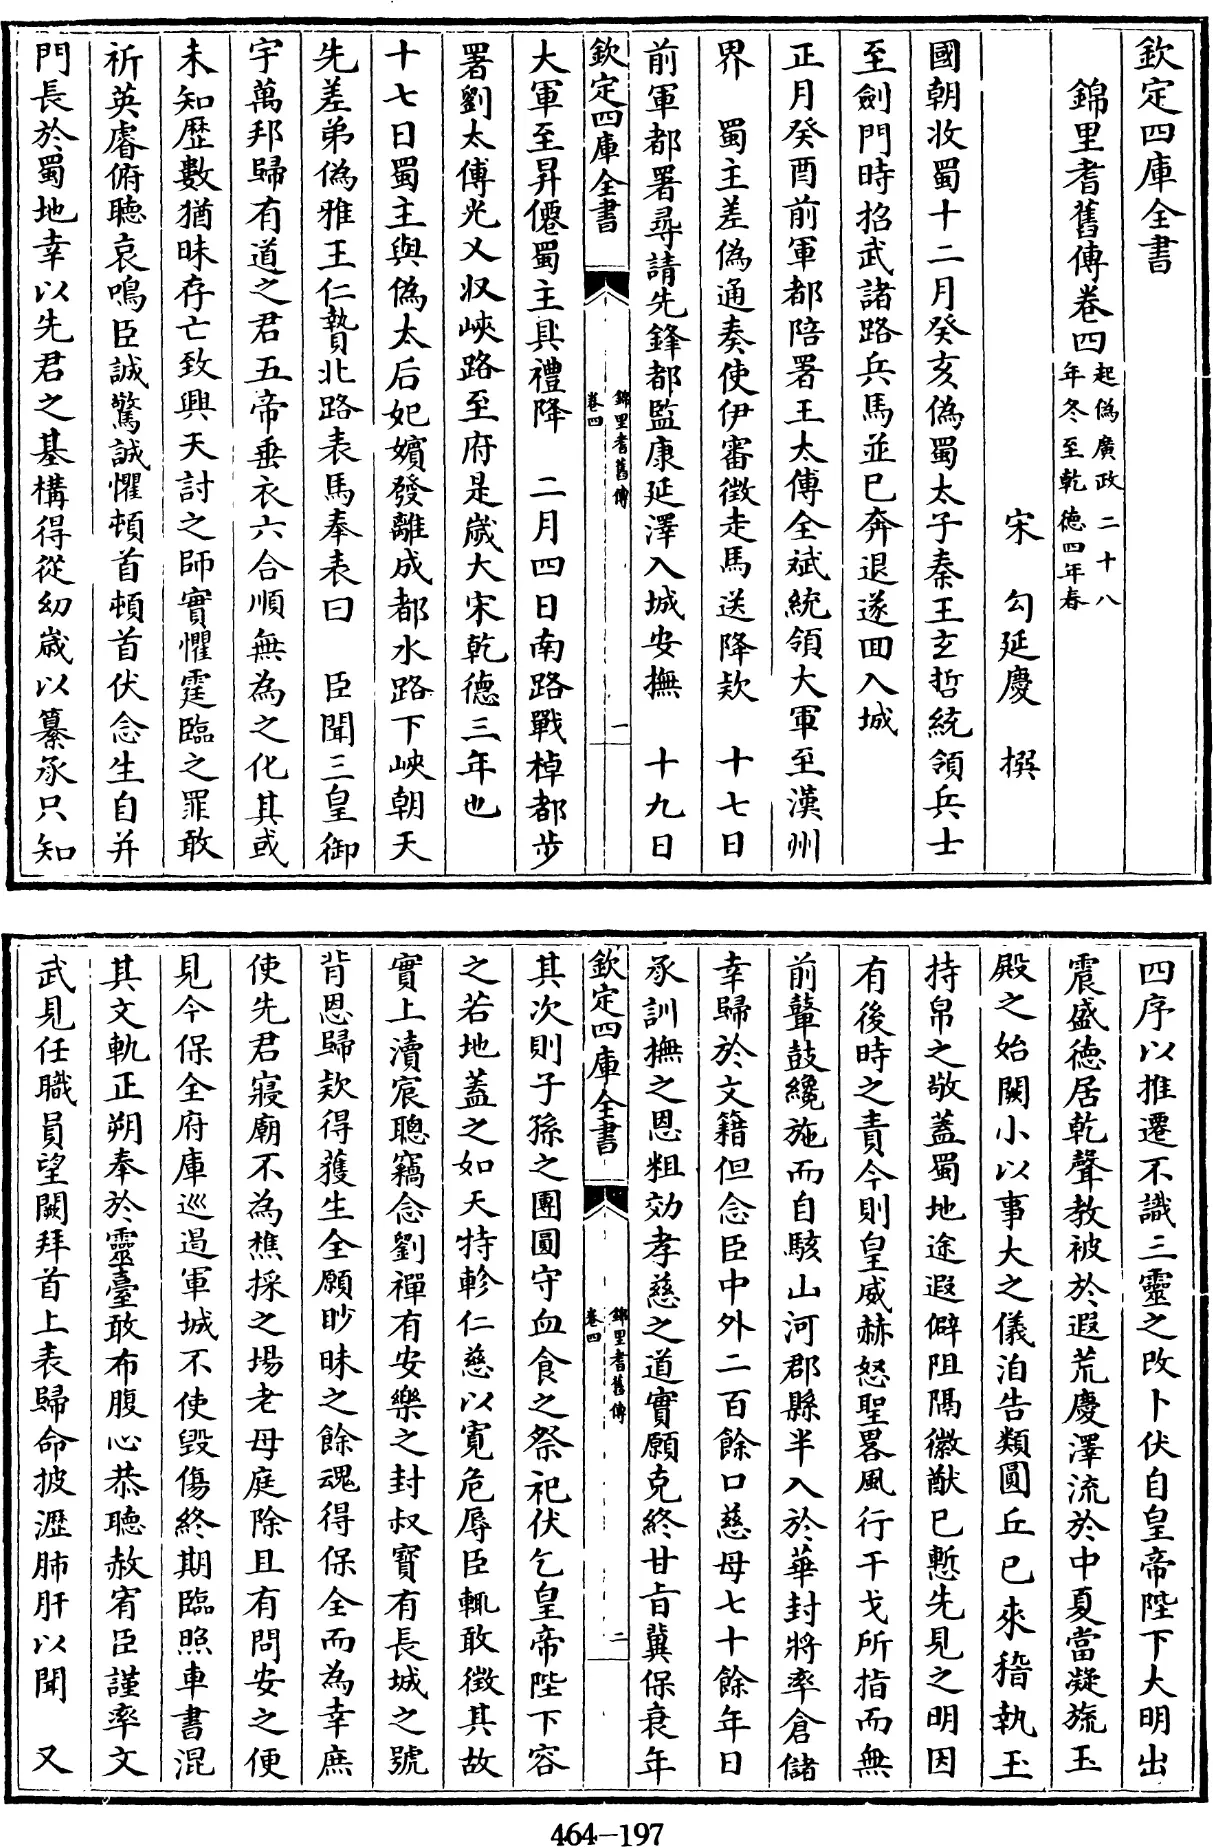 欽定四庫全書
錦里耆舊傳卷四
起偽廣政二十八
年冬至乾德四年春
宋 勾延慶 撰
國朝收蜀十二月癸亥偽蜀太子秦王玄哲統領兵士
至劍門時招武諸路兵馬並已奔退遂囬入城
正月癸酉前軍都陪署王太傅全斌統領大軍至漢州
界 蜀主差偽通奏使伊審徵走馬送降欵 十七日
前軍都署尋請先鋒都監康延澤入城安撫 十九日
欽定四庫全書
錦里耆舊傳
卷四
一
大軍至昇僊蜀主具禮降 二月四日南路戰棹都步
署劉太傅光乂収峽路至府是歲大宋乾德三年也
十七日蜀主與偽太后妃嬪發離成都水路下峽朝天
先差弟偽雅王仁贄北路表馬奉表曰 臣聞三皇御
宇萬邦歸有道之君五帝垂衣六合順無為之化其或
未知歴數猶昧存亡致興天討之師實懼霆臨之罪敢
祈英睿俯聽哀鳴臣誠驚誠懼頓首頓首伏念生自并
門長於蜀地幸以先君之基構得從幼歲以纂承只知
四序以推遷不識三靈之改卜伏自皇帝陛下大明出
震盛德居乾聲教被於遐荒慶澤流於中夏當凝旒玉
殿之始闕小以事大之儀洎告類圓丘已來稽執玉
持帛之敬蓋蜀地途遐僻阻隅徽猷已慙先見之明因
有後時之責今則皇威赫怒聖畧風行干戈所指而無
前鼙鼓纔施而自駭山河郡縣半入於華封將率倉儲
幸歸於文籍但念臣中外二百餘口慈母七十餘年日
承訓撫之恩粗効孝慈之道實願克終甘旨冀保衰年
欽定四庫全書
錦里耆舊傳
卷四
二
其次則子孫之團圓守血食之祭祀伏乞皇帝陛下容
之若地蓋之如天特軫仁慈以寛危辱臣輙敢徴其故
實上瀆宸聰竊念劉禪有安樂之封叔寳有長城之號
背恩歸欵得獲生全願眇昧之餘魂得保全而為幸庶
使先君寢廟不為樵採之場老母庭除且有問安之便
見今保全府庫巡遏軍城不使毀傷終期臨照車書混
其文軌正朔奉於靈臺敢布腹心恭聽赦宥臣謹率文
武見任職員望闕拜首上表歸命披瀝肺肝以聞 又
464-197